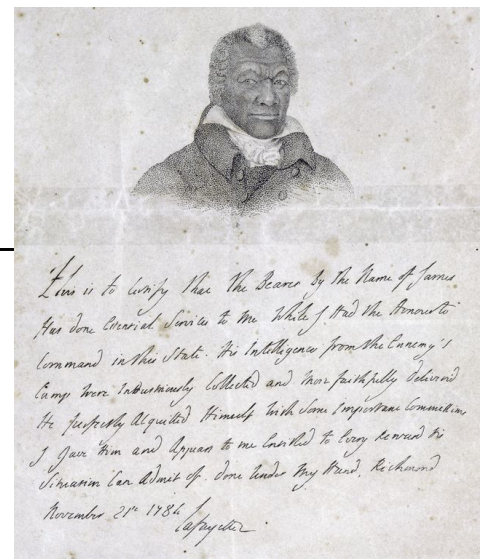 This is to Certify that the Bearer by the Name of James
Has done Essential Services to Me While I Had the Honour to
Command in this State. His Intelligences from the Ennemy's
Camp Were Industriously Collected and More faithfully deliverd
He perfectly Acquitted Himself with Some Important Commissions
I Gave Him and Appears to me Entitled to Every Reward his
Situation Can Admit of. done Under My Hand. Richmond
November 21st 1784
Lafayette